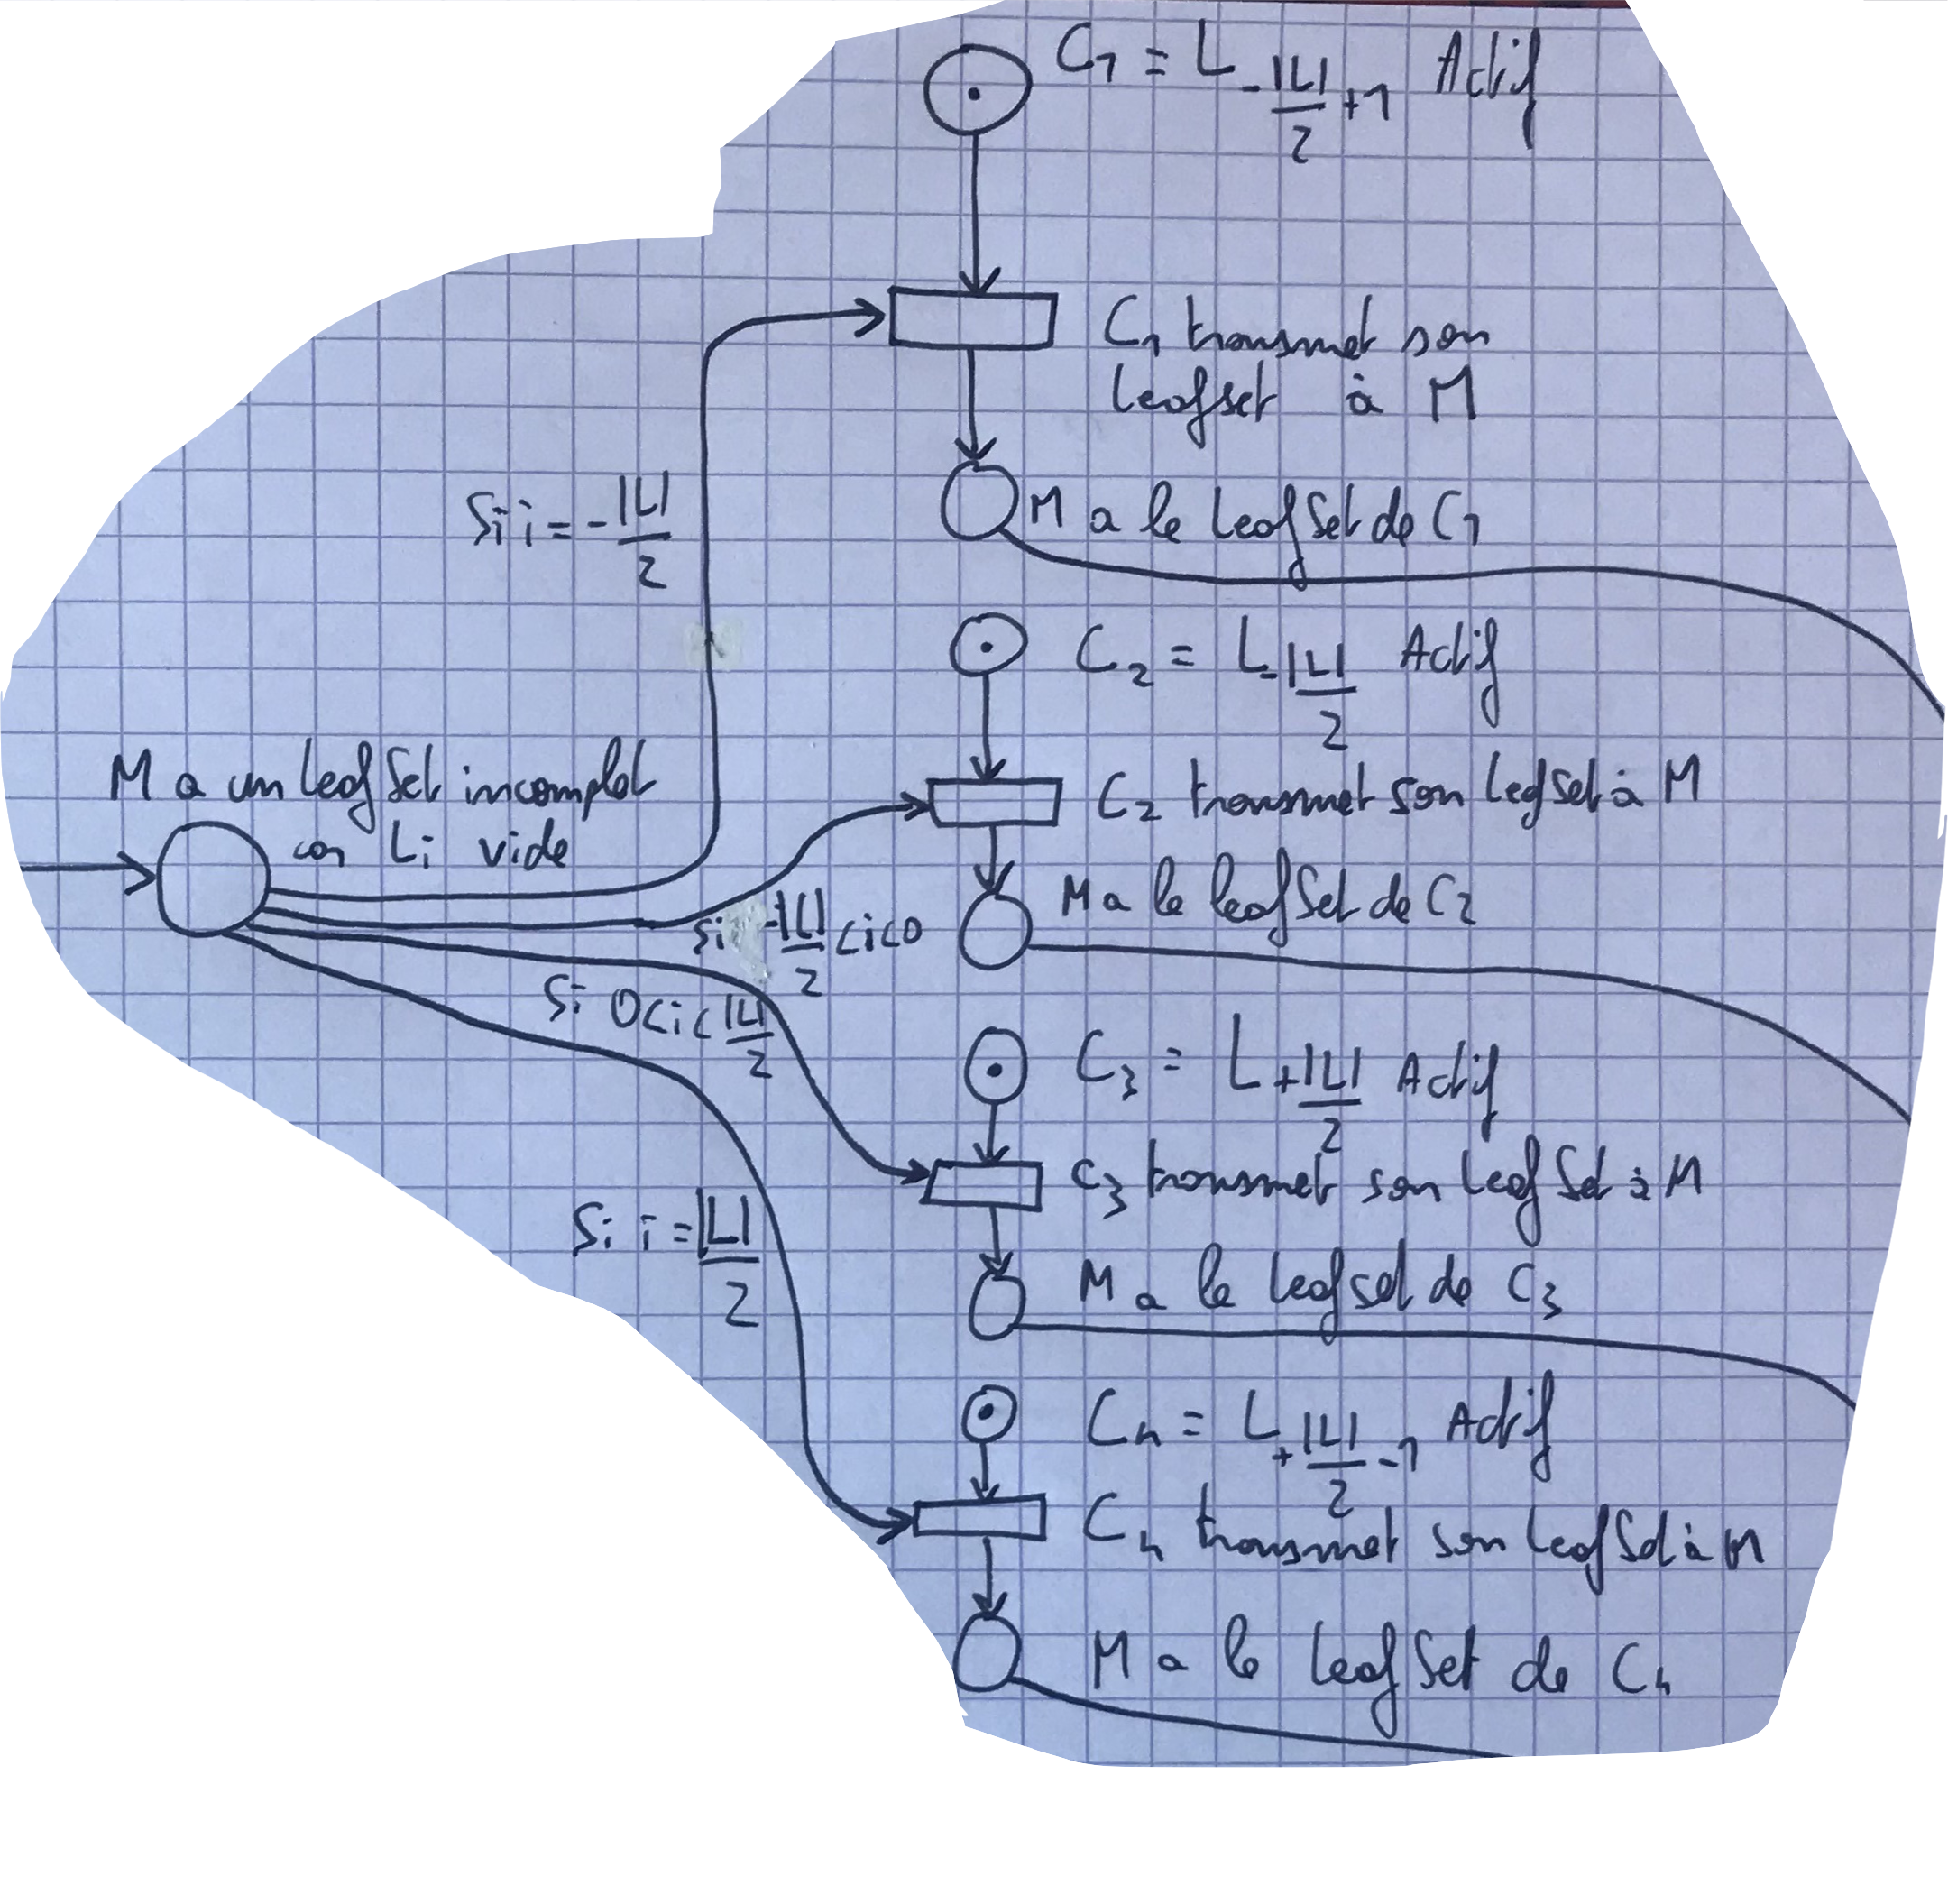 C1 = L -|L|/2 +1 Actif
C1 transmet son
leafset à M
Si i = -|L|/2
M a le leafSet de C1
C2 = L -|L|/2 Actif
M a un leafSet incomplet
car Li vide
C2 transmet son legfset à M
M a le leafSet de C2
si -|L|/2 < i < 0
Si 0 < i < |L|/2
C3 = L +|L|/2 Actif
C3 transmet son leafSet à M
Si i = |L|/2
M a le leafset de C3
C4 = L +|L|/2 -1 Actif
C4 transmet son leafSet à M
M a le leafSet de C4